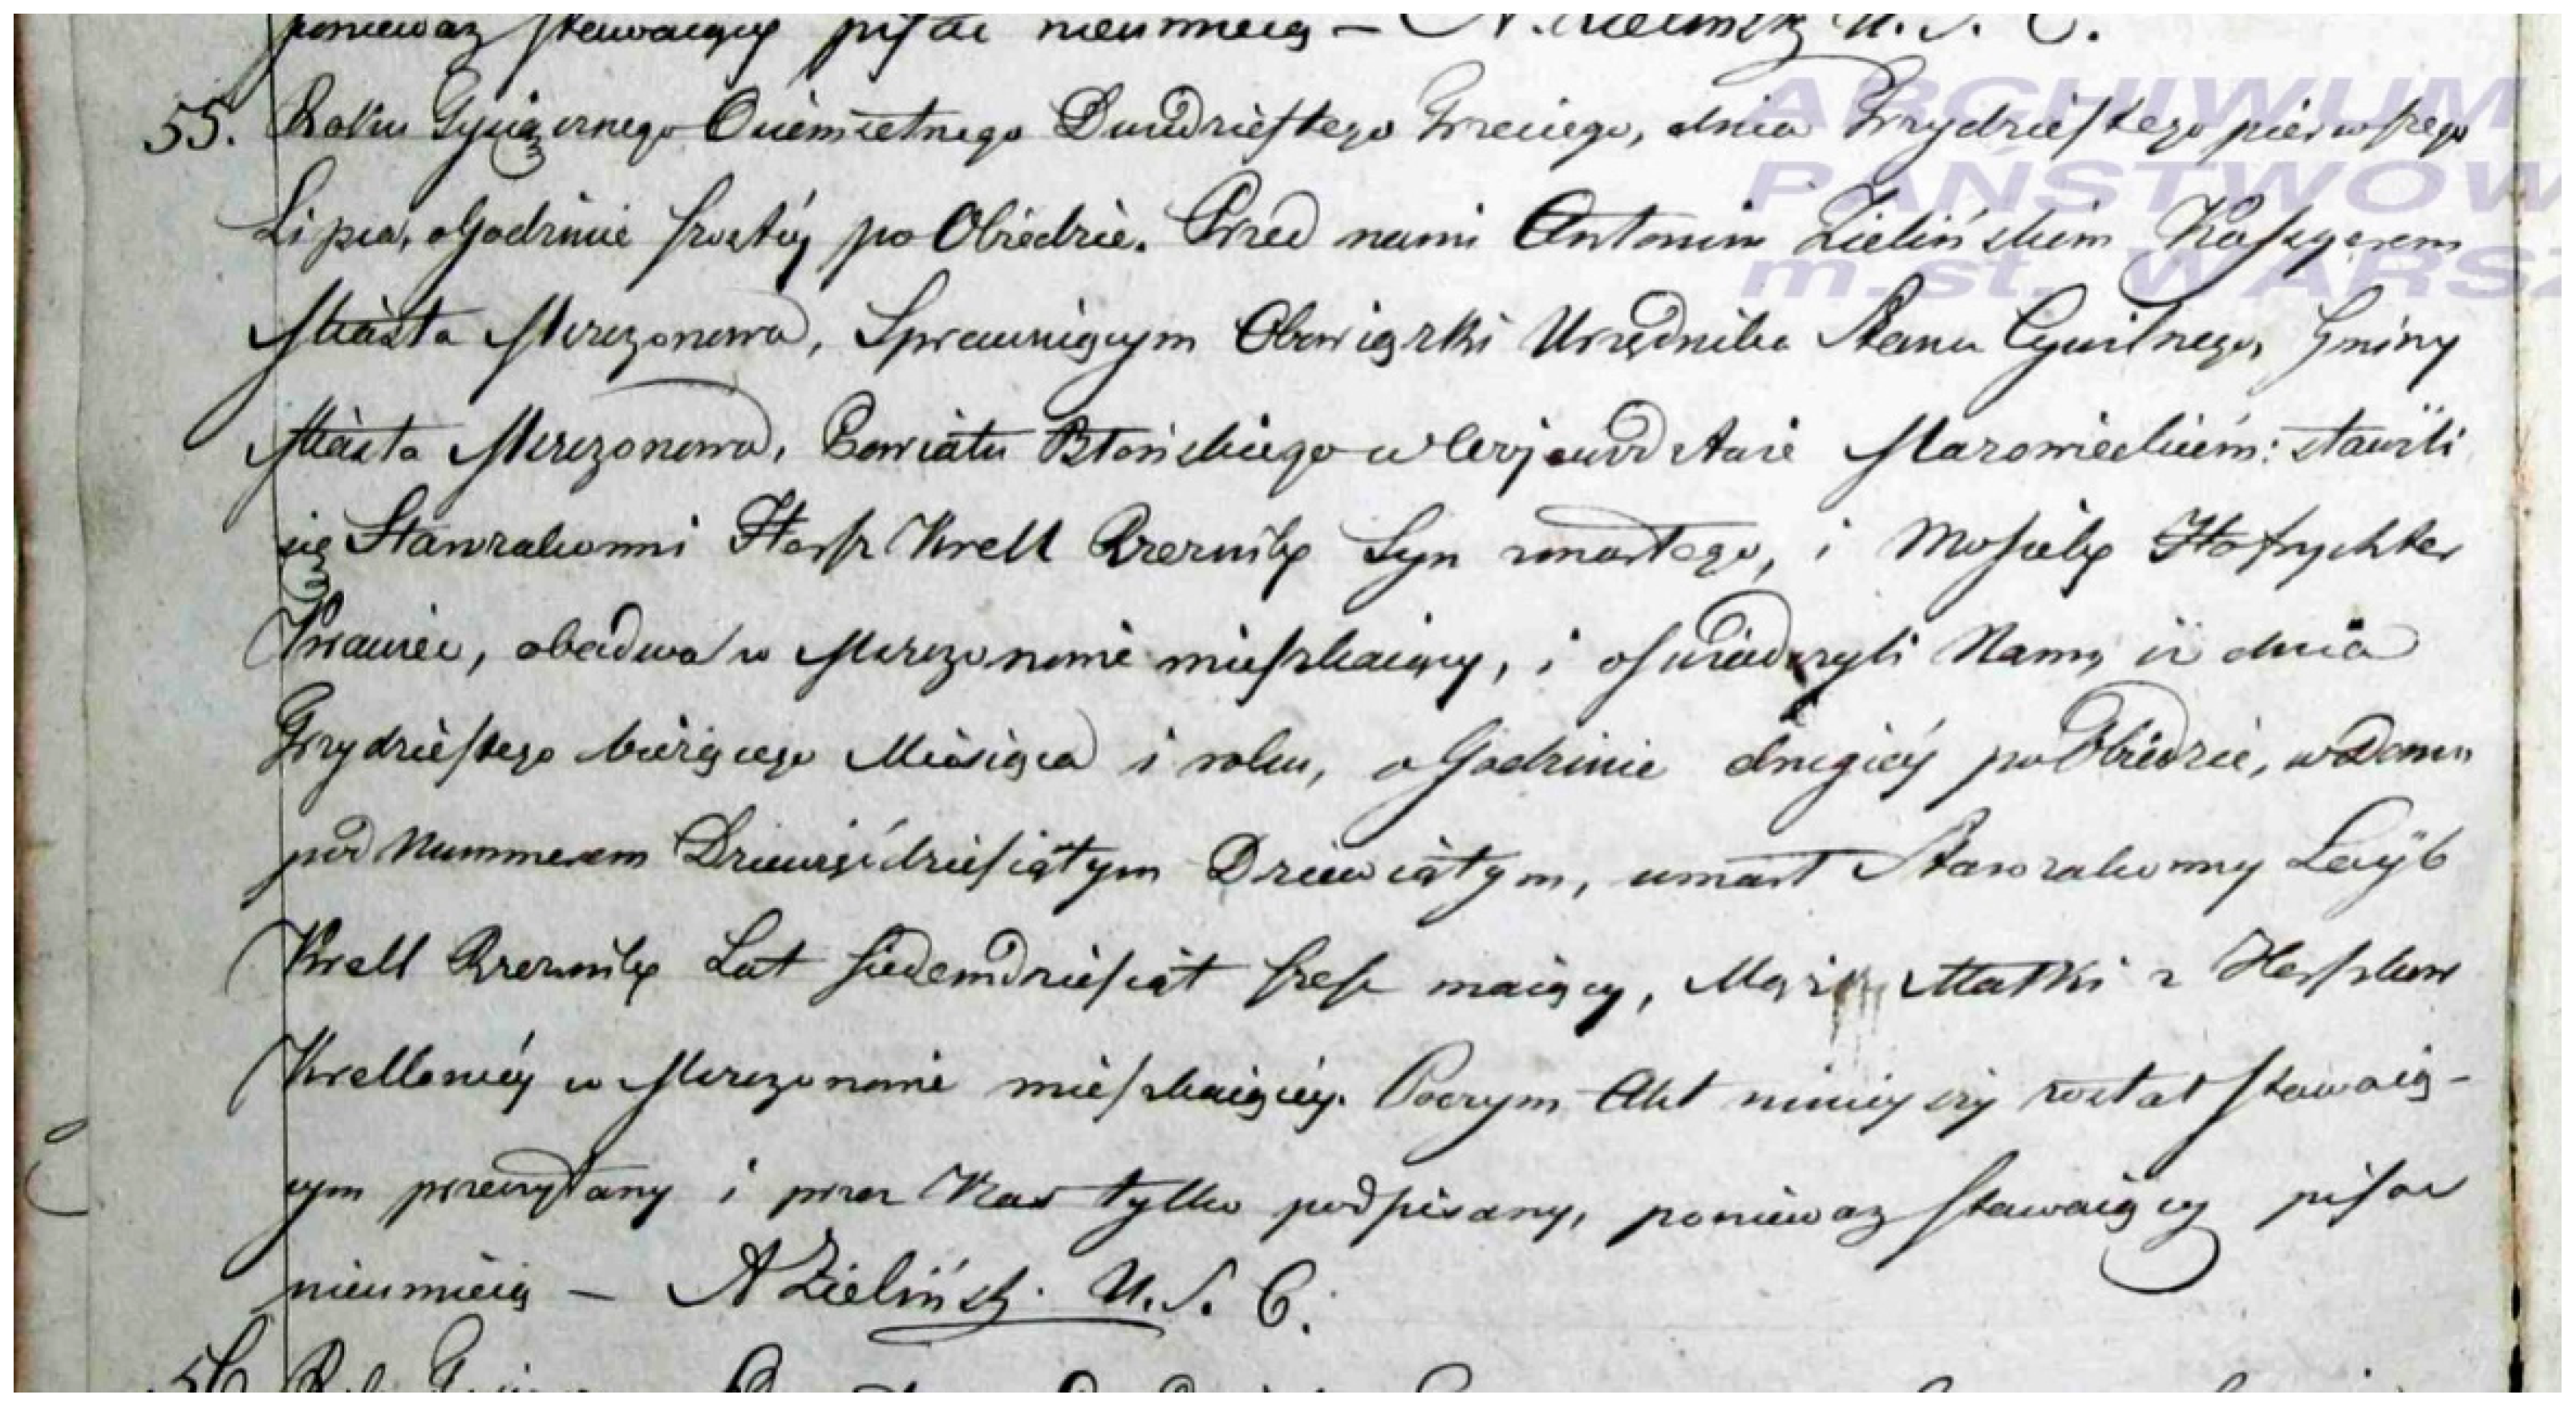 ponieważ stawaiący pisać nieumieią – A. Zieliński U. S. C.
55. Roku Tysiącznego Osiemsetnego Dwudziestego Trzeciego, dnia Trzydziestego pierwszego
Lipca, o Godzinie szostéy po Obiedzie. Przed nami Antonim Zielińskim Kassyerem
Miasta Mszczonowa, Sprawuiącym Obowiązki Urzędnika Stanu Cywilnego, Gminy
Miasta Mszczonowa, Powiatu Błońskiego w Wojewodztwie Mazowieckiem: stawili
się Starozakonni Hersz Krell Rzeznik Syn zmarłego, i Mosiek Hofrychter
Krawiec, obadwa w Mszczonowie mieszkaiący, i oswiadczyli Nam, iż dnia
Trzydziestego bieżącego Miesiąca i roku, o Godzinie drugiéy po Obiedzie, w Domu
pod Nummerem Dziewięćdziesiątym Dziewiątym, umarł Starozakonny Leyb
Krell Rzeznik Lat siedemdziesiąt szesc maiący, Mąż Matki z Herszkow
Krellowéy w Mszczonowie mieszkaiącéy. Poczym Akt ninieyszy został stawaią-
cym przeczytany i przez Nas tylko podpisany, ponieważ stawaiący pisac
nieumieią – A Zieliński U. S. C.
56 Roku
ARCHIWUM
PAŃSTWOW
m.st. WARSZ